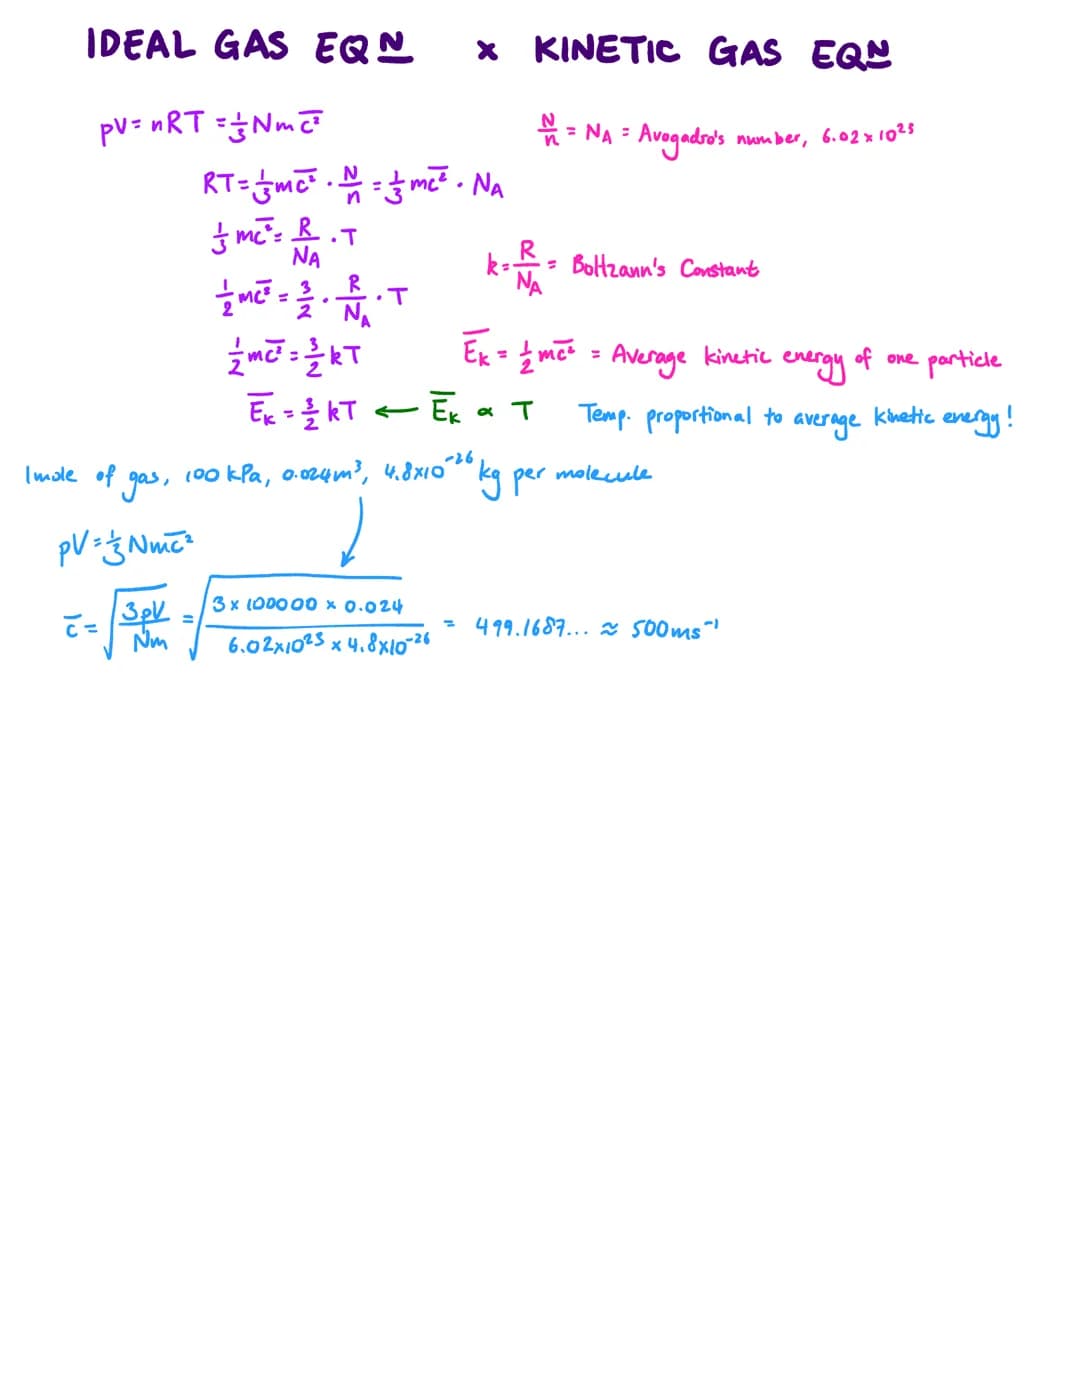 IDEAL GAS EQN x KINETIC GAS EQN
pV = nRT = 1/3 Nm c̅²
N/n = N_A = Avogadro's number, 6.02 x 10²³
RT = 1/3 m c̅² · N/n = 1/3 m c̅² · N_A
1/3 m c̅² = R/N_A · T
k = R/N_A = Boltzann's Constant
1/2 m c̅² = 3/2 · R/N_A · T
1/2 m c̅² = 3/2 kT
E̅ₖ = 1/2 m c̅² = Average kinetic energy of one particle
E̅ₖ = 3/2 kT ← E̅ₖ ∝ T Temp. proportional to average kinetic energy!
1 mole of gas, 100 kPa, 0.024 m³, 4.8x10⁻²⁶ kg per molecule
pV = 1/3 Nm c̅²
c̅ = √(3pV / Nm) = √(3 x 100000 x 0.024 / 6.02x10²³ x 4.8x10⁻²⁶) = 499.1687... ≈ 500ms⁻¹